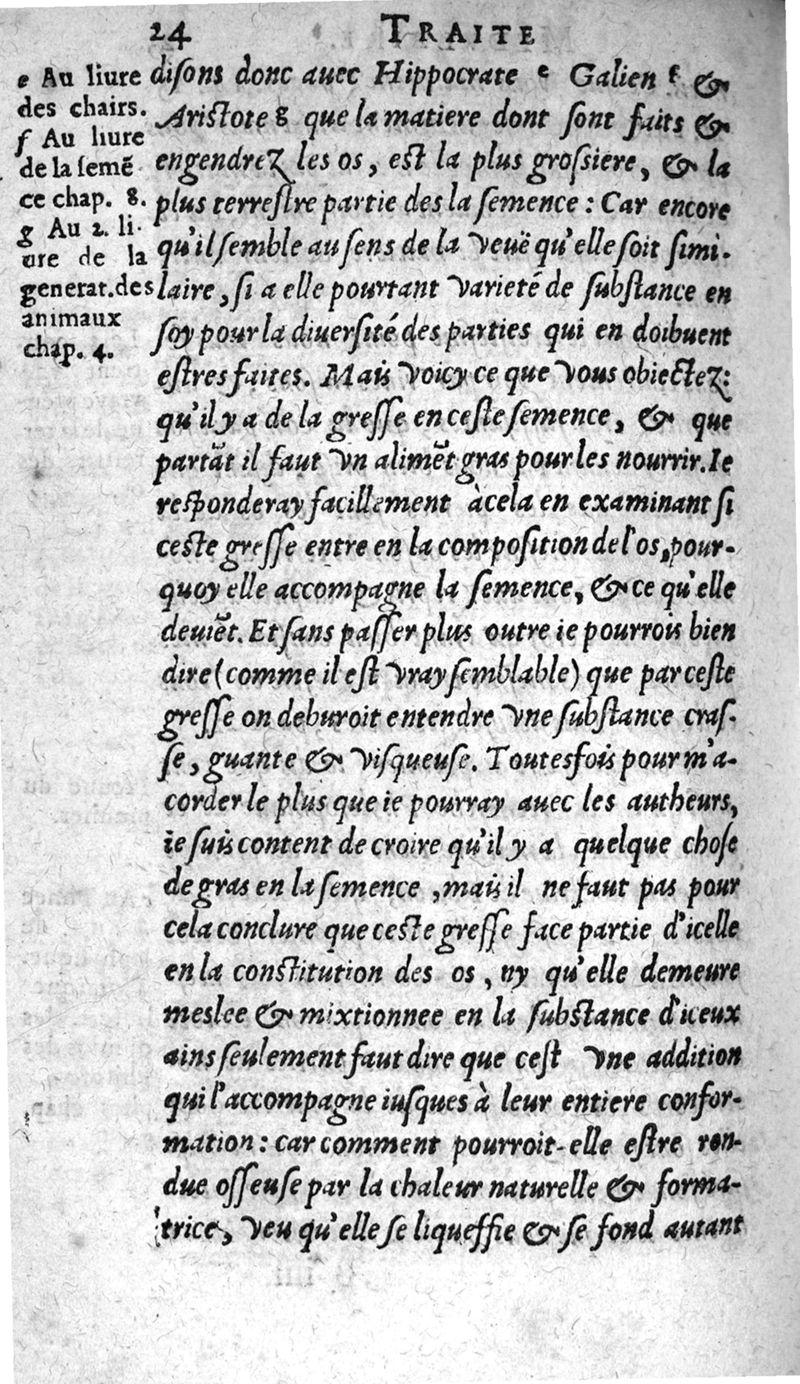 24 TRAITE
e Au liure
des chairs.
f Au liure
de la semē
ce chap. 8.
g Au 2. li-
ure de la
generat.des
animaux
chap. 4.
diſons donc auec Hippocrate e Galien f &
Ariſtote g que la matiere dont ſont faits &
engendrez les os, eſt la plus groſsiere, & la
plus terreſtre partie des la ſemence : Car encore
qu'il ſemble au ſens de la veuë qu'elle ſoit ſimi-
laire, ſi a elle pourtant varieté de ſubſtance en
ſoy pour la diuerſité des parties qui en doibuent
eſtres faites. Mais voicy ce que vous obiectez:
qu'il y a de la greſſe en ceſte ſemence, & que
partāt il faut vn alimēt gras pour les nourrir. Ie
reſponderay facillement à cela en examinant ſi
ceſte greſſe entre en la compoſition de l'os, pour-
quoy elle accompagne la ſemence, & ce qu'elle
deuiēt. Et ſans paſſer plus outre ie pourrois bien
dire (comme il eſt vray ſemblable) que par ceſte
greſſe on deburoit entendre vne ſubſtance craſ-
ſe, guante & viſqueuſe. Toutesfois pour m'a-
corder le plus que ie pourray auec les autheurs,
ie ſuis content de croire qu'il y a quelque choſe
de gras en la ſemence, mais il ne faut pas pour
cela conclure que ceſte greſſe face partie d'icelle
en la conſtitution des os, ny qu'elle demeure
meslee & mixtionnee en la ſubſtance d'iceux
ains ſeulement faut dire que ceſt vne addition
qui l'accompagne iuſques à leur entiere confor-
mation : car comment pourroit-elle eſtre ren-
due oſſeuſe par la chaleur naturelle & forma-
trice, veu qu'elle ſe liqueffie & ſe fond autant